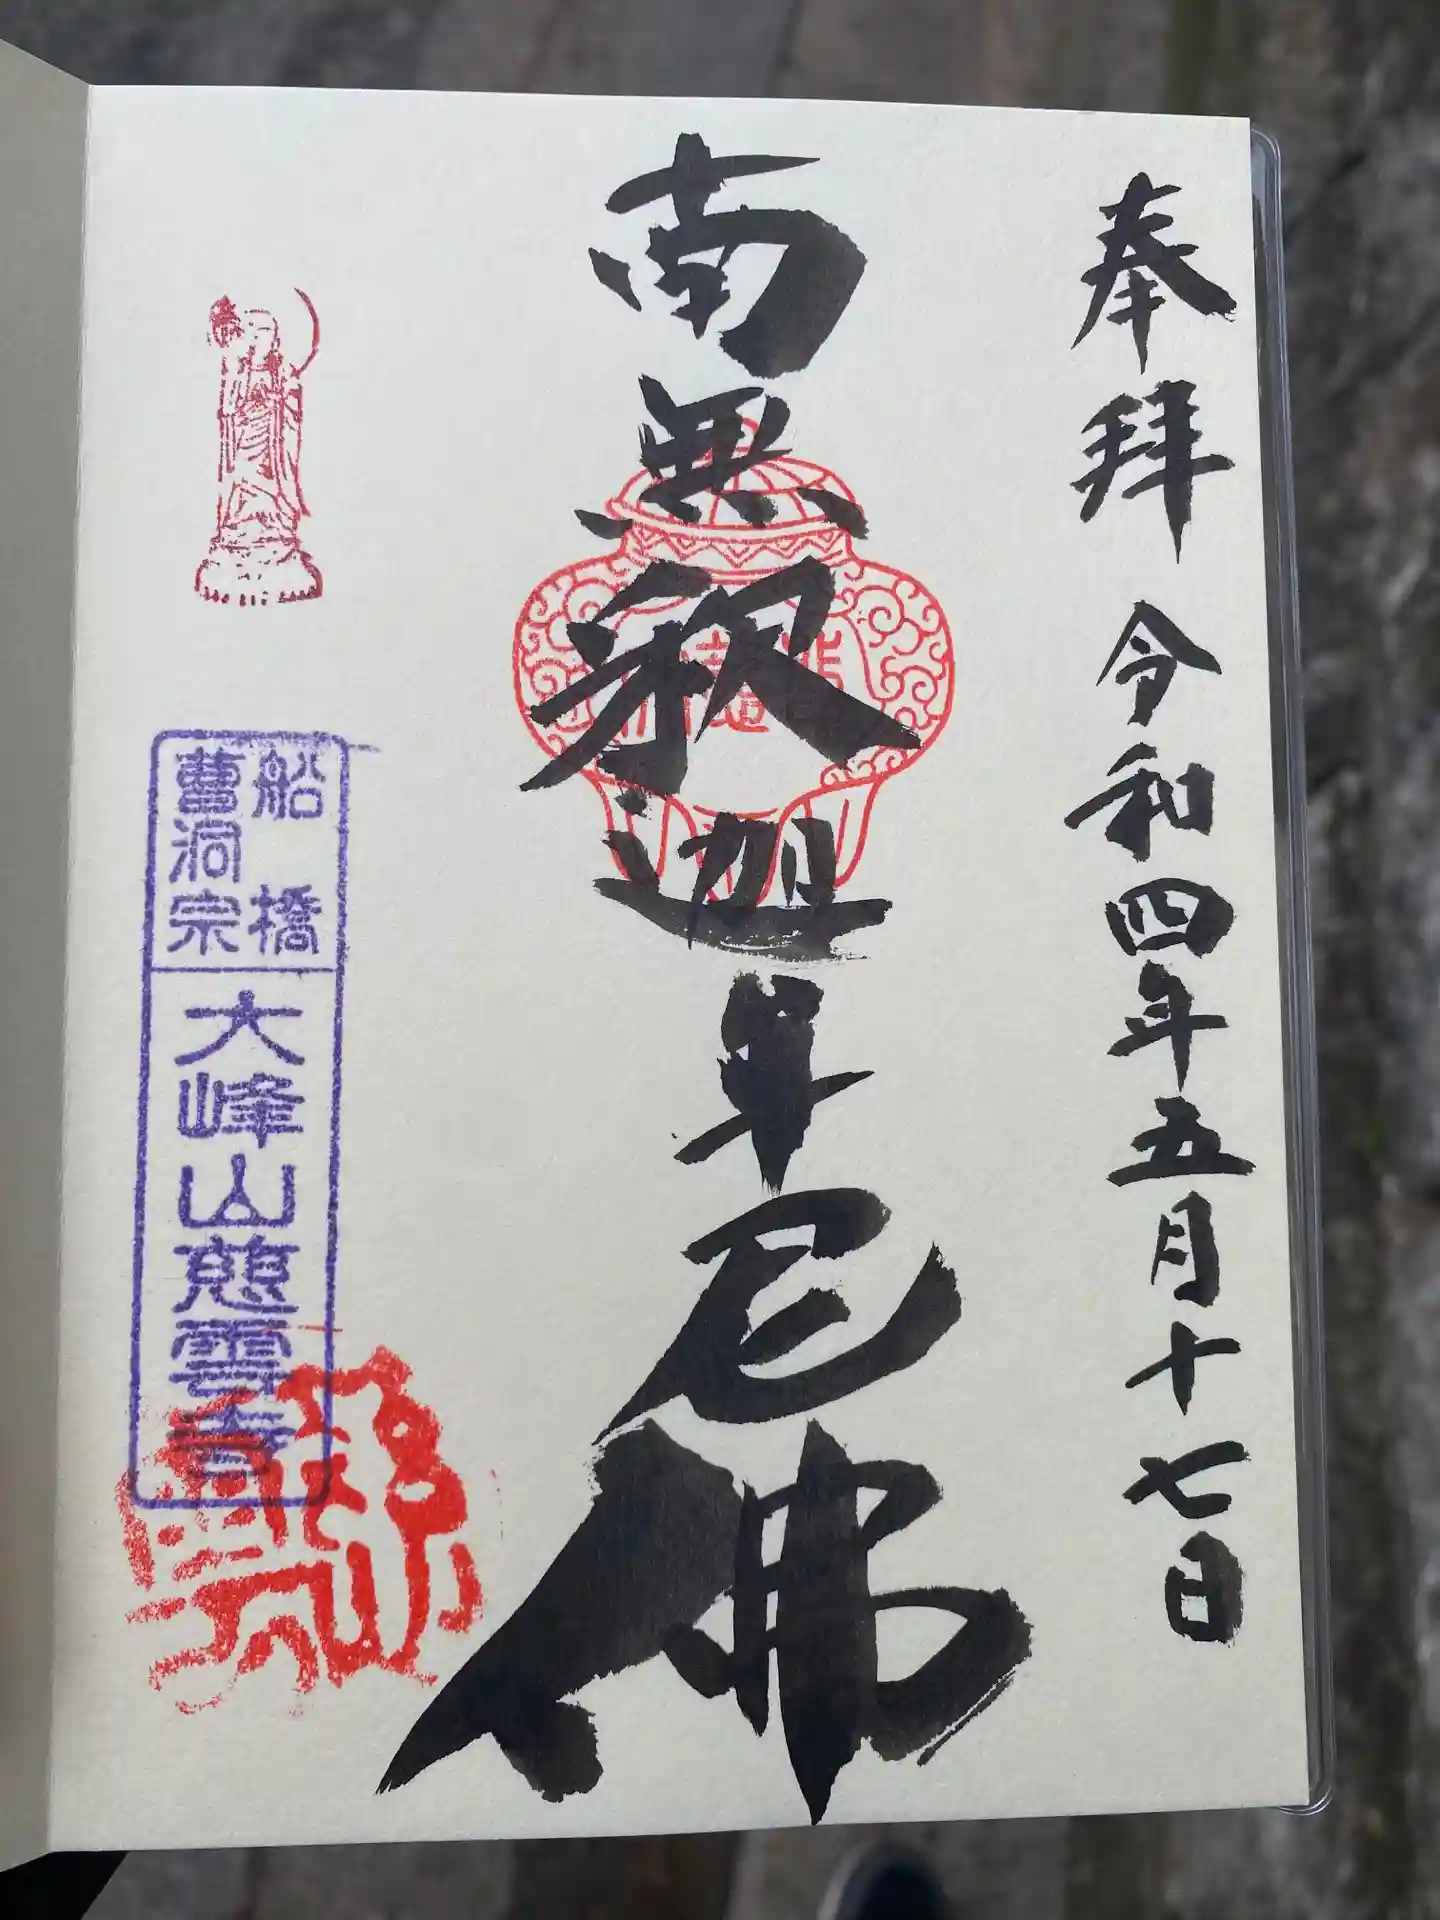 奉拜 令和四年五月十七日
南無釈迦牟尼佛
船橋
曹洞宗
大峰山慈雲寺